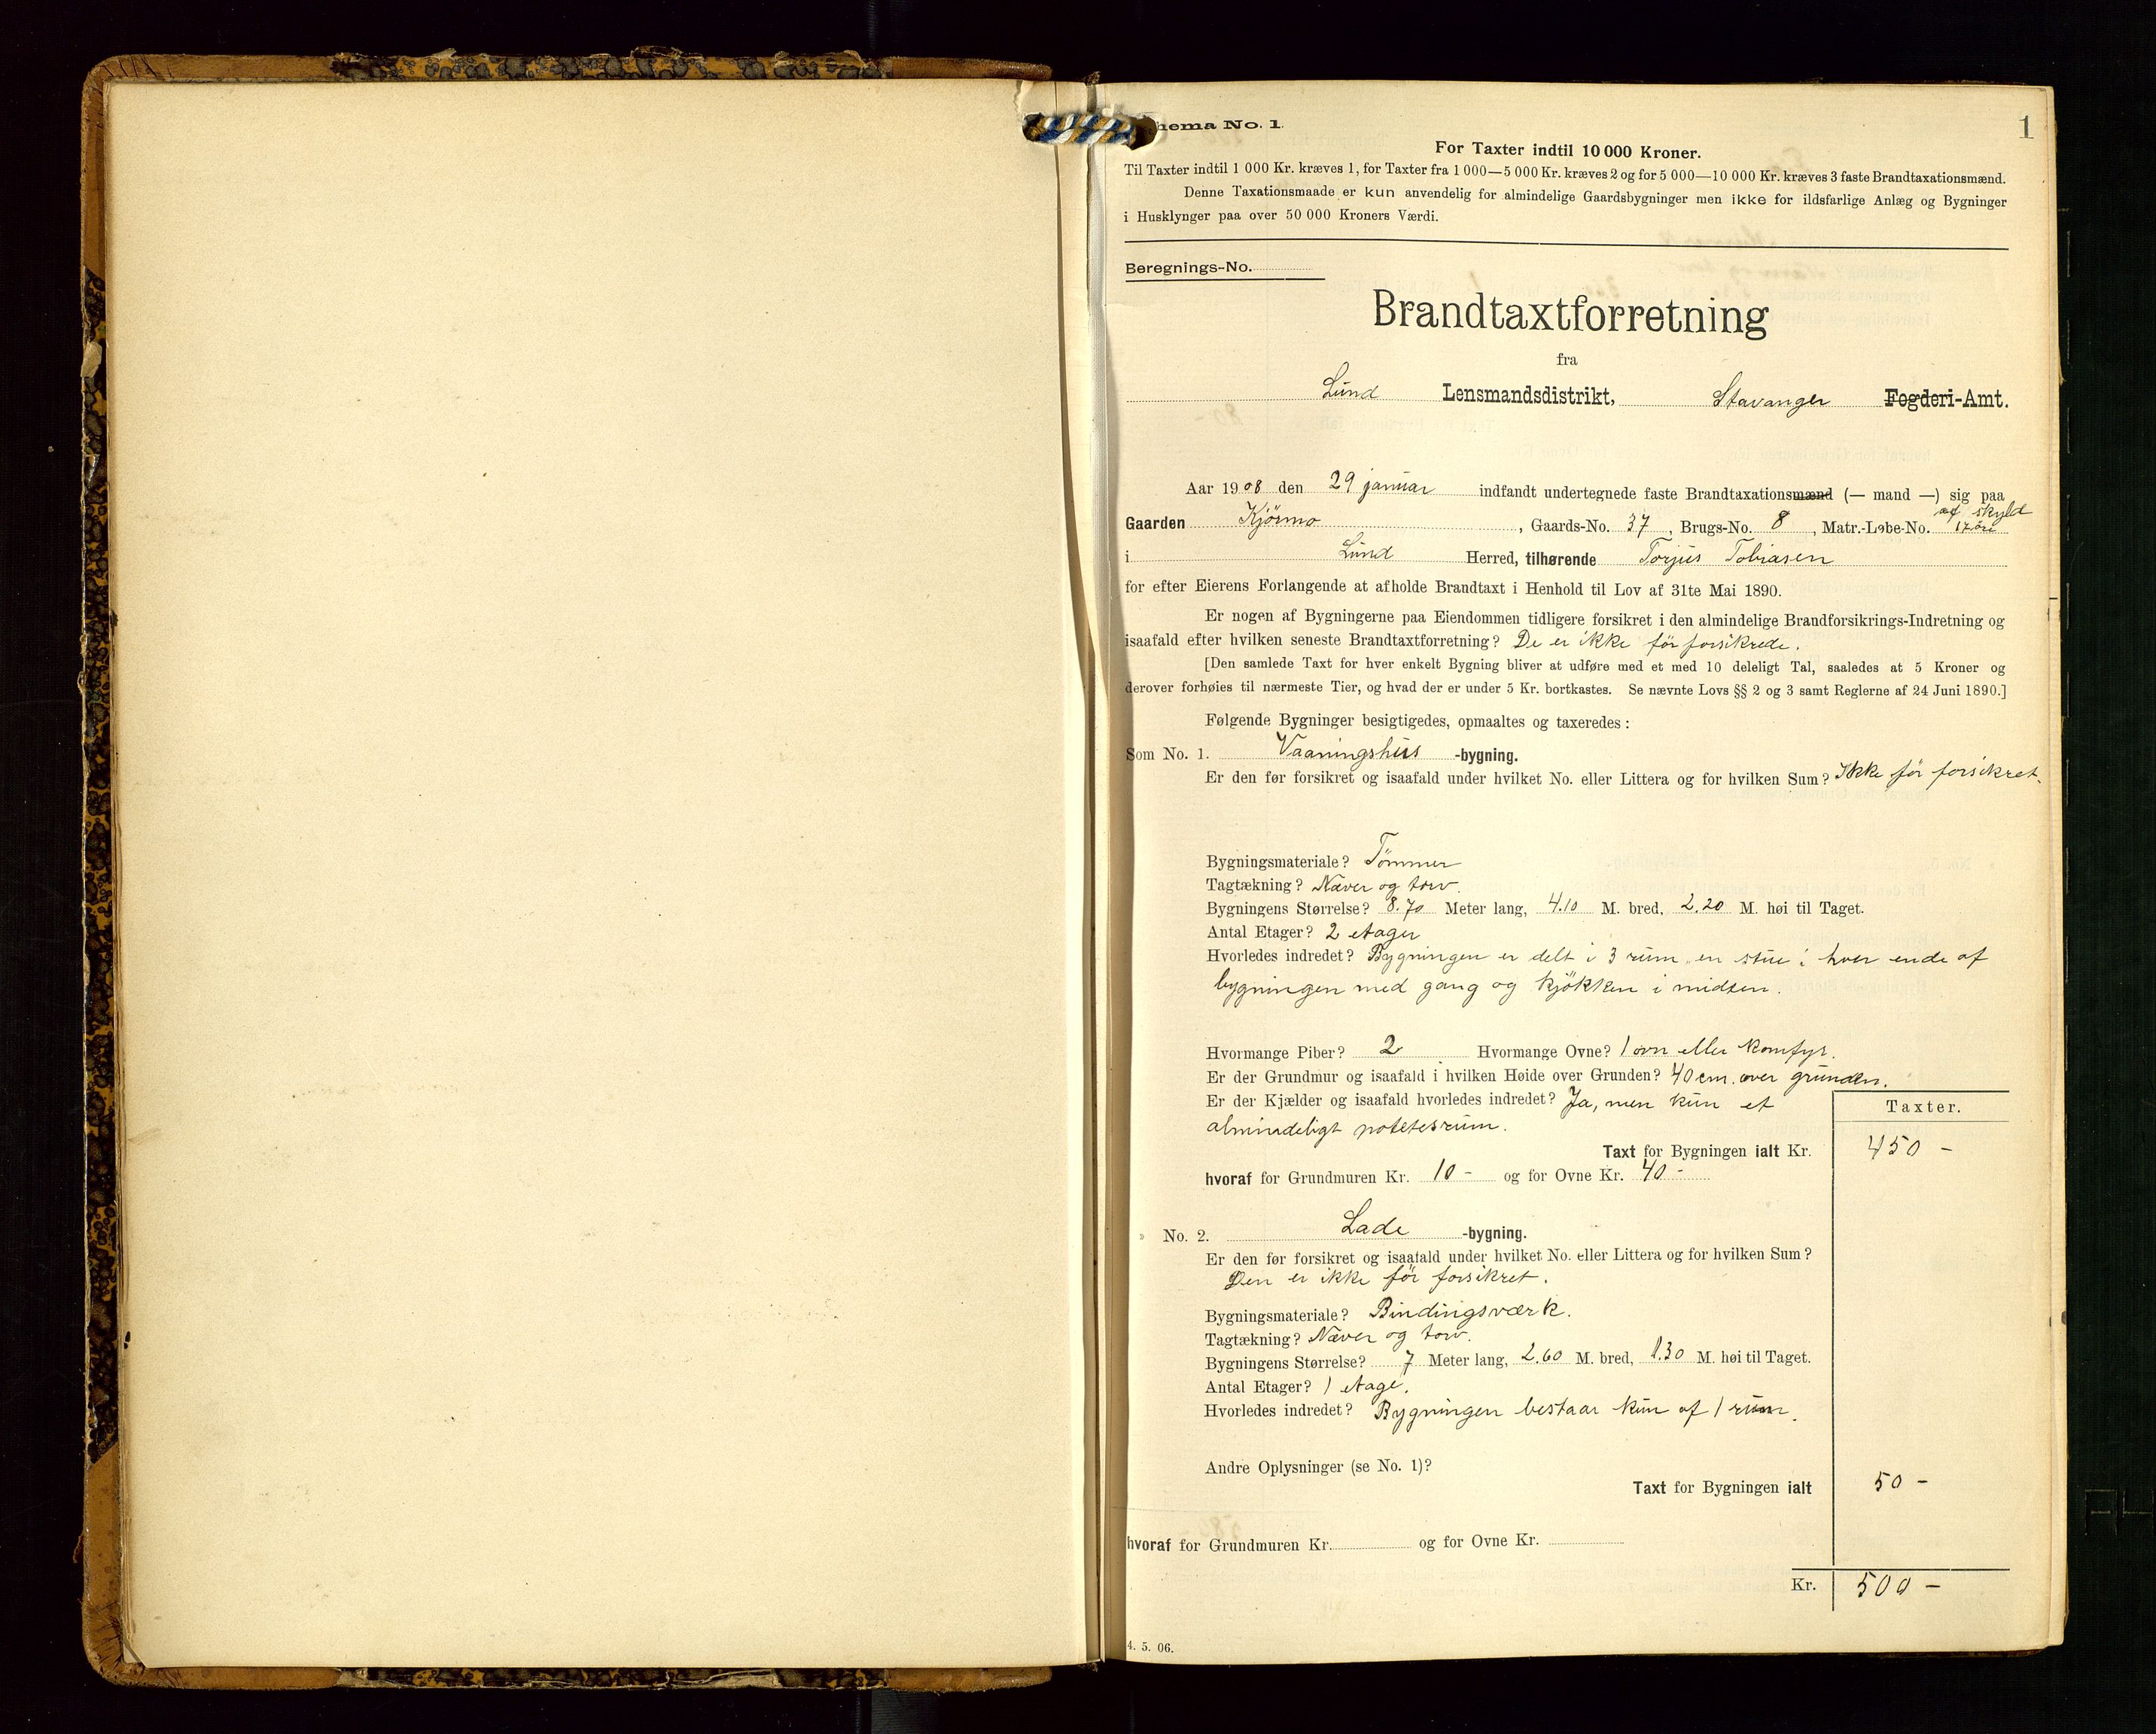 1
hema No. 1.
For Taxter indtil 10 000 Kroner.
Til Taxter indtil 1 000 Kr. kræves 1, for Taxter fra 1 000—5 000 Kr. kræves 2 og for 5 000—10 000 Kr. kræves 3 faste Brandtaxationsmænd.
Denne Taxationsmaade er kun anvendelig for almindelige Gaardsbygninger men ikke for ildsfarlige Anlæg og Bygninger
i Husklynger paa over 50 000 Kroners Værdi.
Beregnings-No.
Brandtaxtforretning
fra
Lund Lensmandsdistrikt, Stavanger Fogderi-Amt.
Aar 1908 den 29 januar indfandt undertegnede faste Brandtaxationsmænd (— mand —) sig paa
af skyld
Gaarden Kjörmo, Gaards-No. 37, Brugs-No. 8, Matr.-Løbe-No. 17 öre
i Lund Herred, tilhørende Torjus Tobiasen
for efter Eierens Forlangende at afholde Brandtaxt i Henhold til Lov af 31te Mai 1890.
Er nogen af Bygningerne paa Eiendommen tidligere forsikret i den almindelige Brandforsikrings-Indretning og
isaafald efter hvilken seneste Brandtaxtforretning? De er ikke för forsikrede.
[Den samlede Taxt for hver enkelt Bygning bliver at udføre med et med 10 deleligt Tal, saaledes at 5 Kroner og
derover forhøies til nærmeste Tier, og hvad der er under 5 Kr. bortkastes. Se nævnte Lovs §§ 2 og 3 samt Reglerne af 24 Juni 1890.]
Følgende Bygninger besigtigedes, opmaaltes og taxeredes:
Som No. 1. Vaaningshus -bygning.
Er den før forsikret og isaafald under hvilket No. eller Littera og for hvilken Sum? Ikke för forsikret.
Bygningsmateriale? Tömmer
Tagtækning? Næver og torv.
Bygningens Størrelse? 8.70 Meter lang, 4.10 M. bred, 2.20 M. høi til Taget.
Antal Etager? 2 etager
Hvorledes indredet? Bygningen er delt i 3 rum, en stue i hver ende af
bygningen med gang og kjökken i midten.
Hvormange Piber? 2 Hvormange Ovne? 1 ovn eller komfyr.
Er der Grundmur og isaafald i hvilken Høide over Grunden? 40 cm. over grunden.
Er der Kjælder og isaafald hvorledes indredet? Ja, men kun et
Taxter.
almindeligt potetesrum.
Taxt for Bygningen ialt Kr. 450 -
hvoraf for Grundmuren Kr. 10 - og for Ovne Kr. 40 -
» No. 2. Lade -bygning.
Er den før forsikret og isaafald under hvilket No. eller Littera og for hvilken Sum?
Den er ikke för forsikret.
Bygningsmateriale? Bindingsværk.
Tagtækning? Næver og torv.
Bygningens Størrelse? 7 Meter lang, 2.60 M. bred, 1.30 M. høi til Taget.
Antal Etager? 1 etage.
Hvorledes indredet? Bygningen bestaar kun af 1 rum.
Andre Oplysninger (se No. 1)?
Taxt for Bygningen ialt 50 -
hvoraf for Grundmuren Kr. og for Ovne Kr.
Kr. 500 -
4. 5. 06.